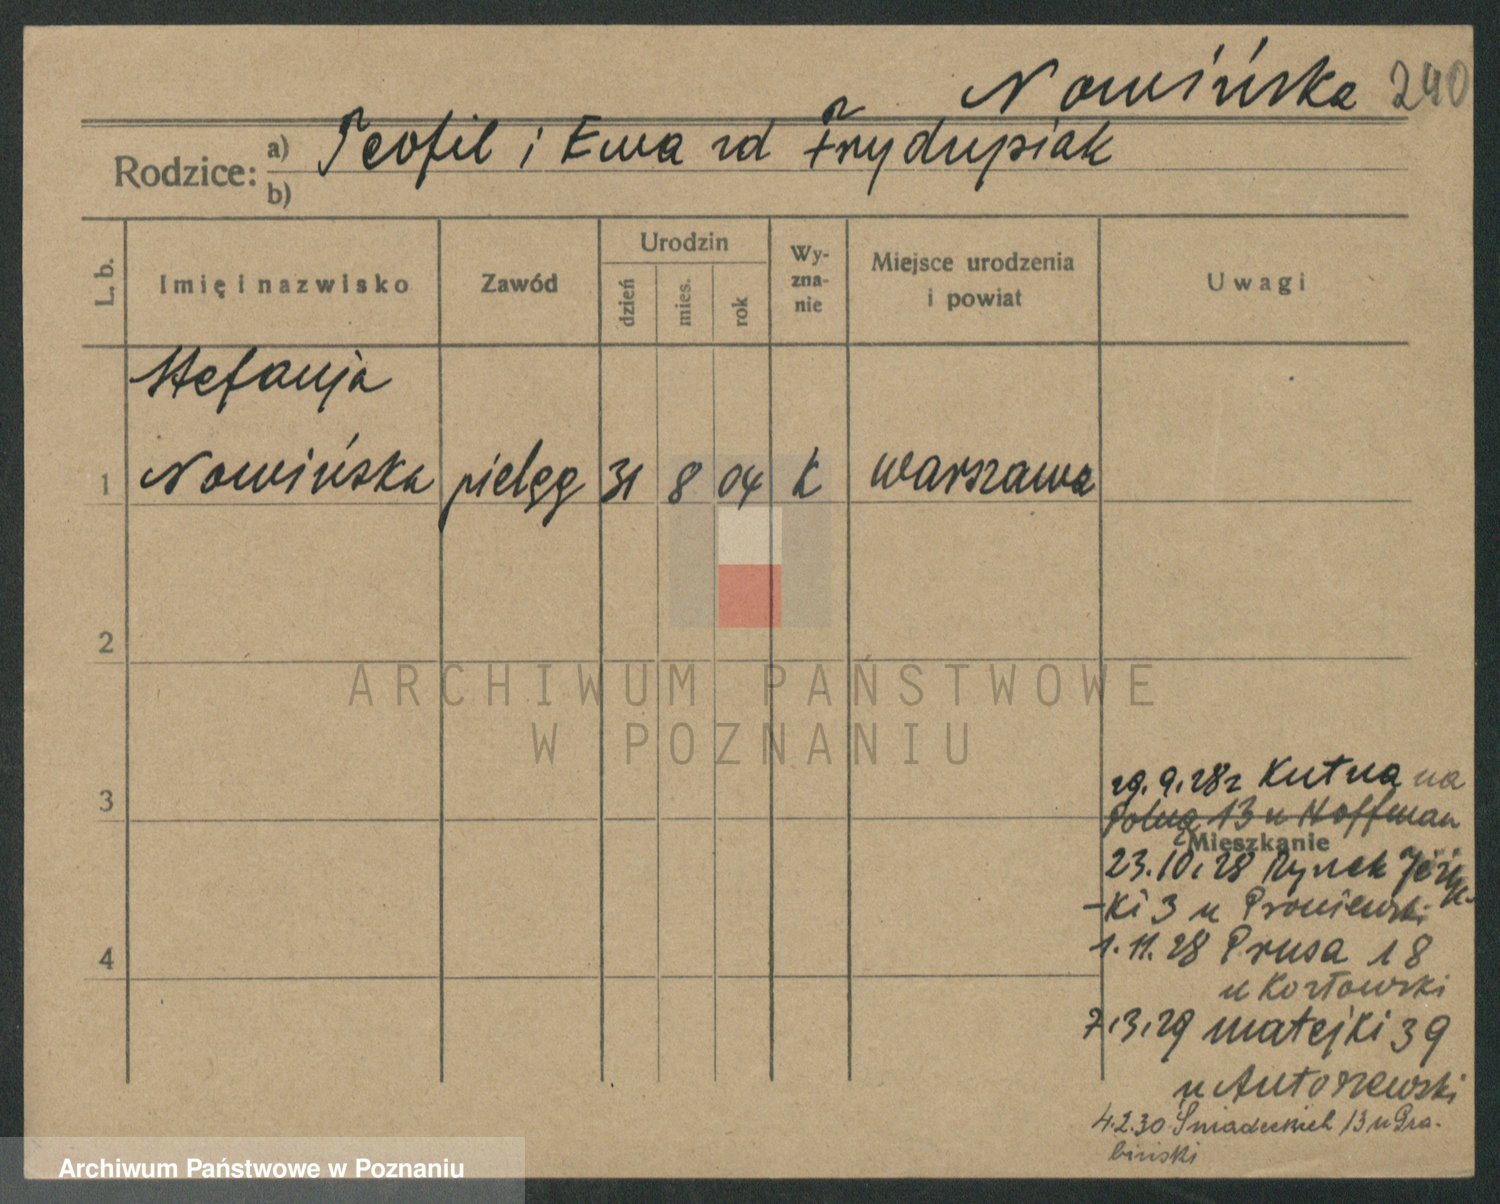 Nowińska 240
Rodzice: a) Teofil i Ewa zd Frydrysiak
b)
L. b.
Imię i nazwisko
Zawód
Urodzin
dzień
mies.
rok
Wy-
zna-
nie
Miejsce urodzenia
i powiat
Uwagi
Stefanja
1 Nowińska pielęg 31 8 04 K Warszawa
2
ARCHIWUM PAŃSTWOWE
W POZNANIU
3
29.9.28 z Kutna na
Polną 13 u Hoffman
Mieszkanie
23.10.28 Rynek Jeżyc-
-ki 3 u Broniewski
4
1.11.28 Prusa 18
u Kozłowski
7.3.29 Matejki 39
u Antoszewski
4.2.30 Śniadeckich 13 u Gra-
biński
Archiwum Państwowe w Poznaniu